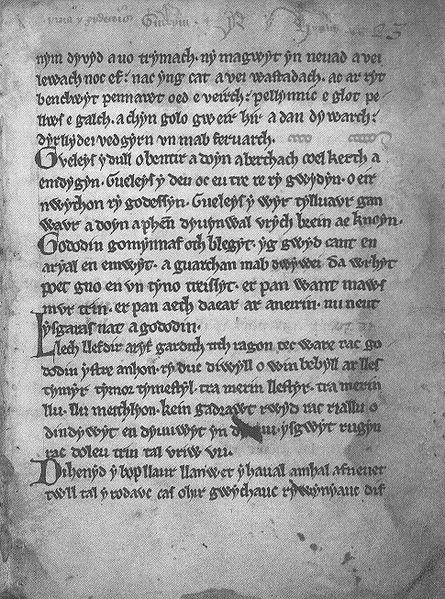 23
nym dyvyd a uo trymach. ny magwyt yn neuad a vei
lewach noc ef. nac yng cat a vei wastadach. ac ar ryt
benclwyt pennawt oed e veirch. pellynnic e glot pe
llws e galch. a chyn golo gweir hir a dan dywarch.
dyrllydei vedgyrn vn mab feruarch.
Gveleys y dull o bentir a doyn aberthach coel kerth a
emdygyn. Gueleys y deu oc eu tre re ry gwydyn. o eir
nwython ry godessyn. Gueleys y wyr tylluavr gan
wavr a doyn a phen dyuynwal vrych brein ae knoyn.
Gododin gomynnaf oth blegyt. yg gwyd cant en
aryal en emwyt. a guarchan mab dwywei da wrhyt
poet gno en vn tyno treissyt. er pan want maws
mvr trin. er pan aeth daear ar aneirin. nu neut
ysgaras nat a gododin.
Llech llefdir aryf gardith tith ragon tec ware rac go
dodin ystre anhon. ry duc diwyll o win bebyll ar lles
tymyr. tymor tymestyl. tra merin llestyr. tra merin
llu. llu meithlyon. kein gadrawt rwyd rac riallu o
dindywyt en dyuuwyt yn dyuu. ysgwyt rugyn
rac doleu trin tal vriw vu.
Dihenyd y bop llaur llanwet y haual amhal afneuet
twll tal y rodavc cas ohir gwychauc rywynyauc dif